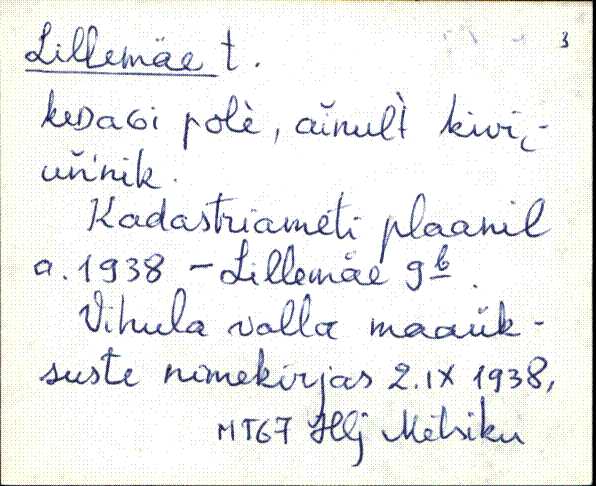 3
Lillemäe t.
keDaGi polè, aìnult̀ kivi-
uǹ'nik.
Kadastriameti plaanil
a. 1938 – Lillemäe 9b.
Vihula valla maaük-
suste nimekirjas 2.IX 1938,
MT67 Hlj Metsiku